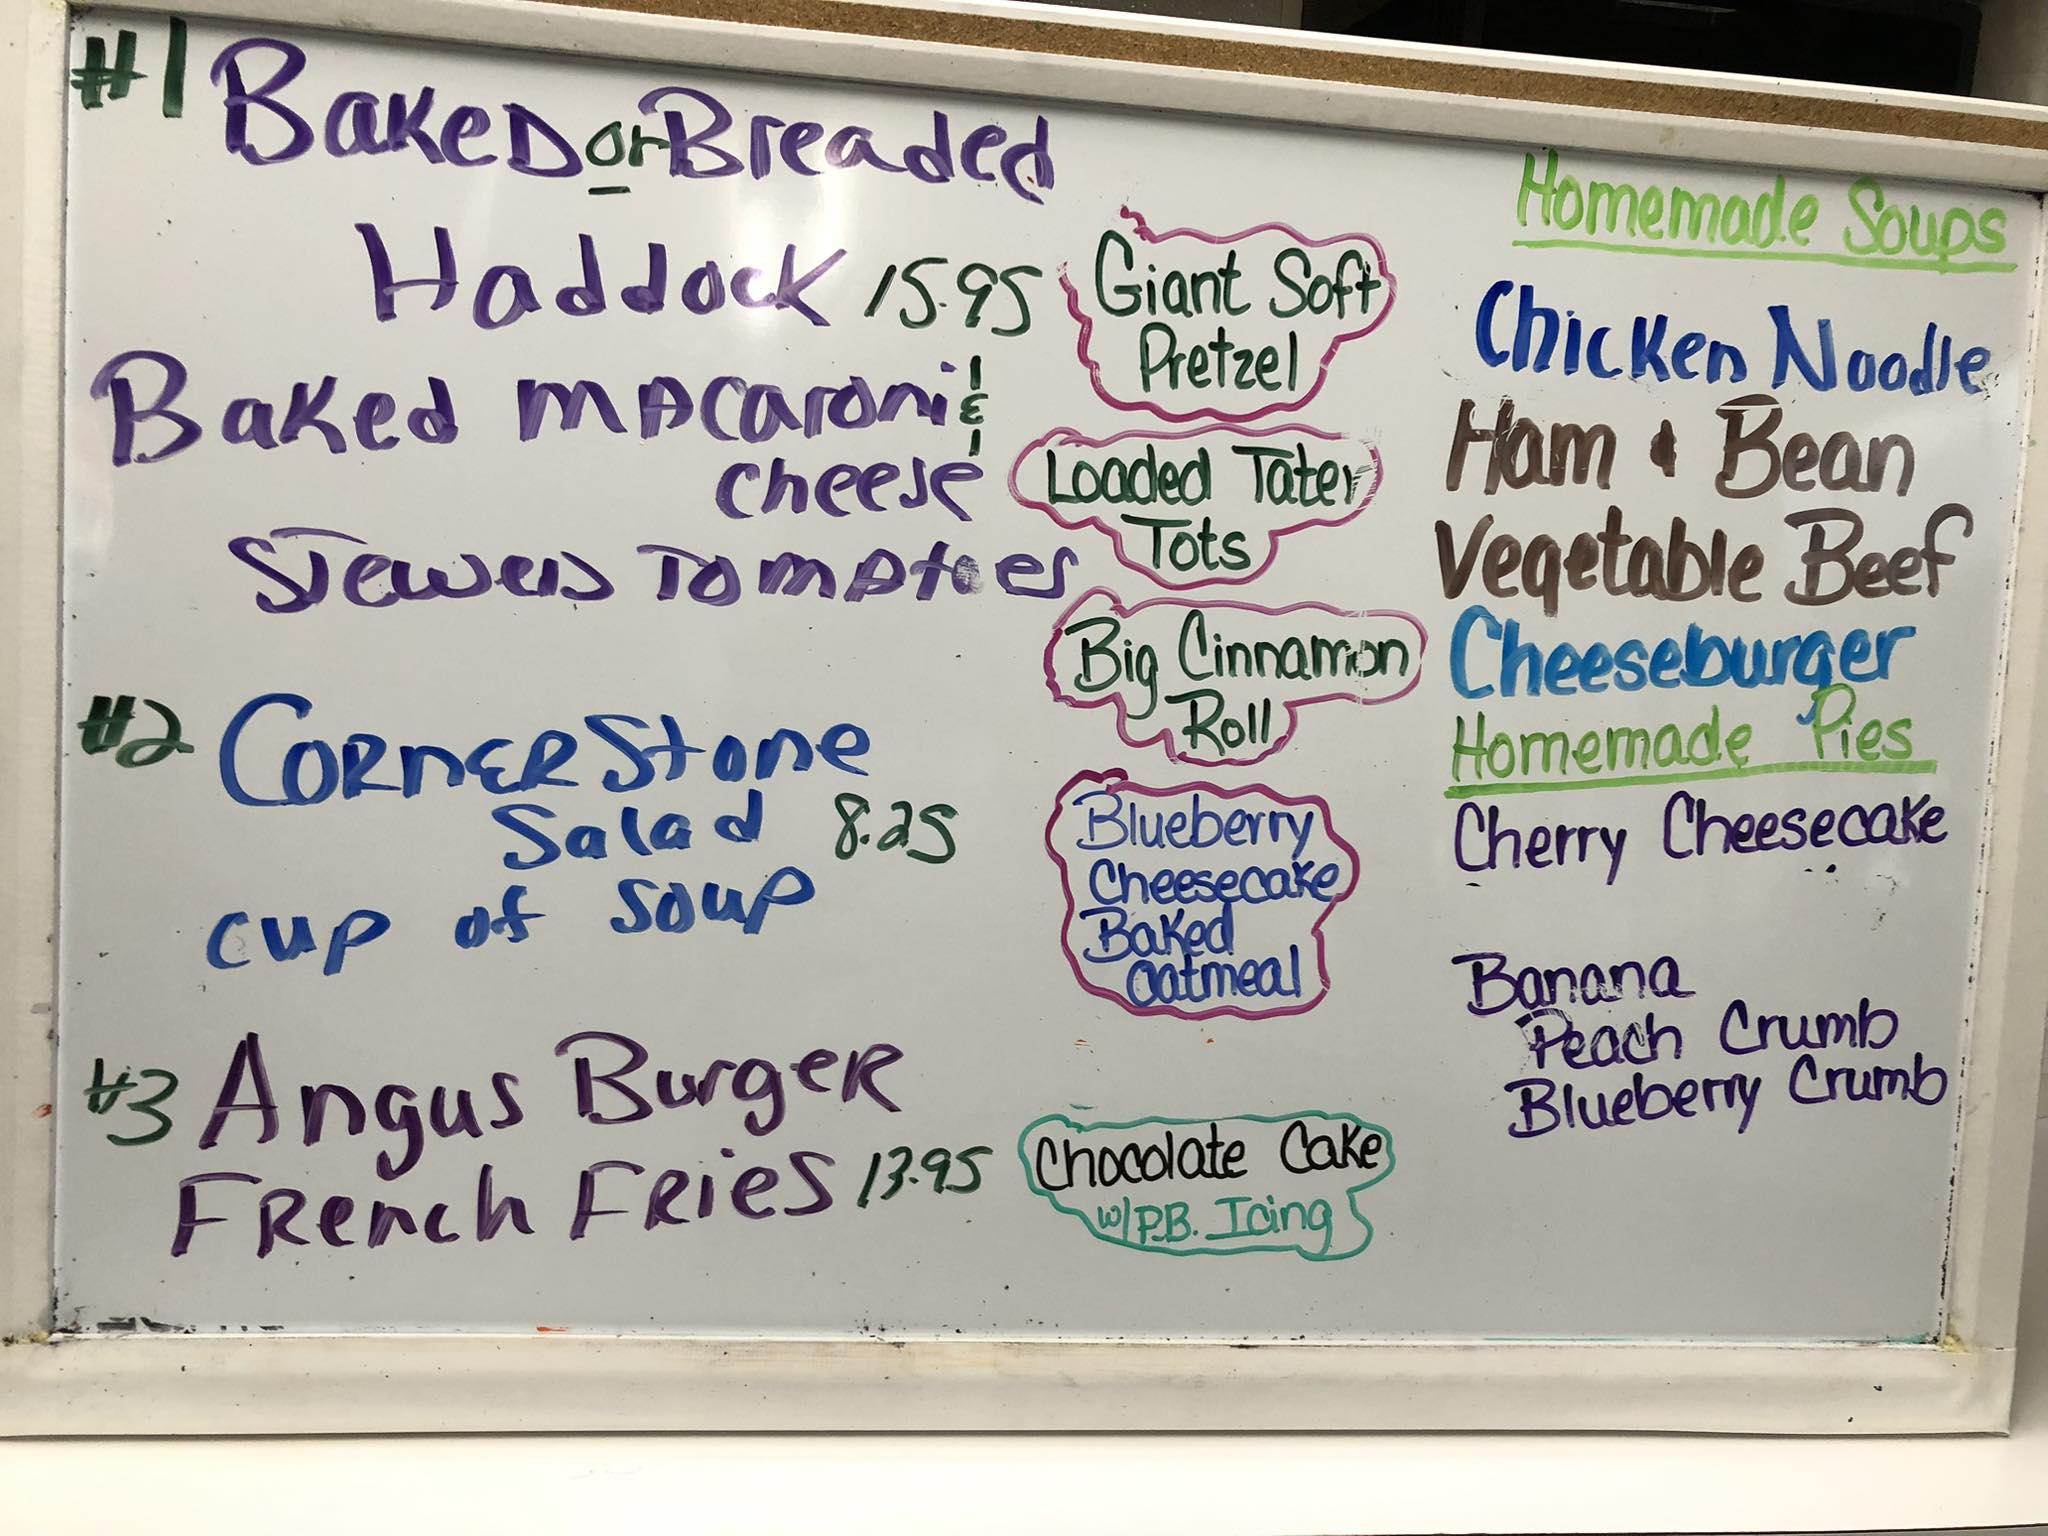 #1 Baked or Breaded
Haddock 15.95
Baked macaroni &
cheese
Stewed Tomatoes
#2 Corner Stone
Salad 8.25
cup of soup
#3 Angus Burger
French Fries 13.95
Giant Soft
Pretzel
Loaded Tater
Tots
Big Cinnamon
Roll
Blueberry
Cheesecake
Baked
Oatmeal
Chocolate Cake
w/P.B. Icing
Homemade Soups
Chicken Noodle
Ham & Bean
Vegetable Beef
Cheeseburger
Homemade Pies
Cherry Cheesecake
Banana
Peach Crumb
Blueberry Crumb